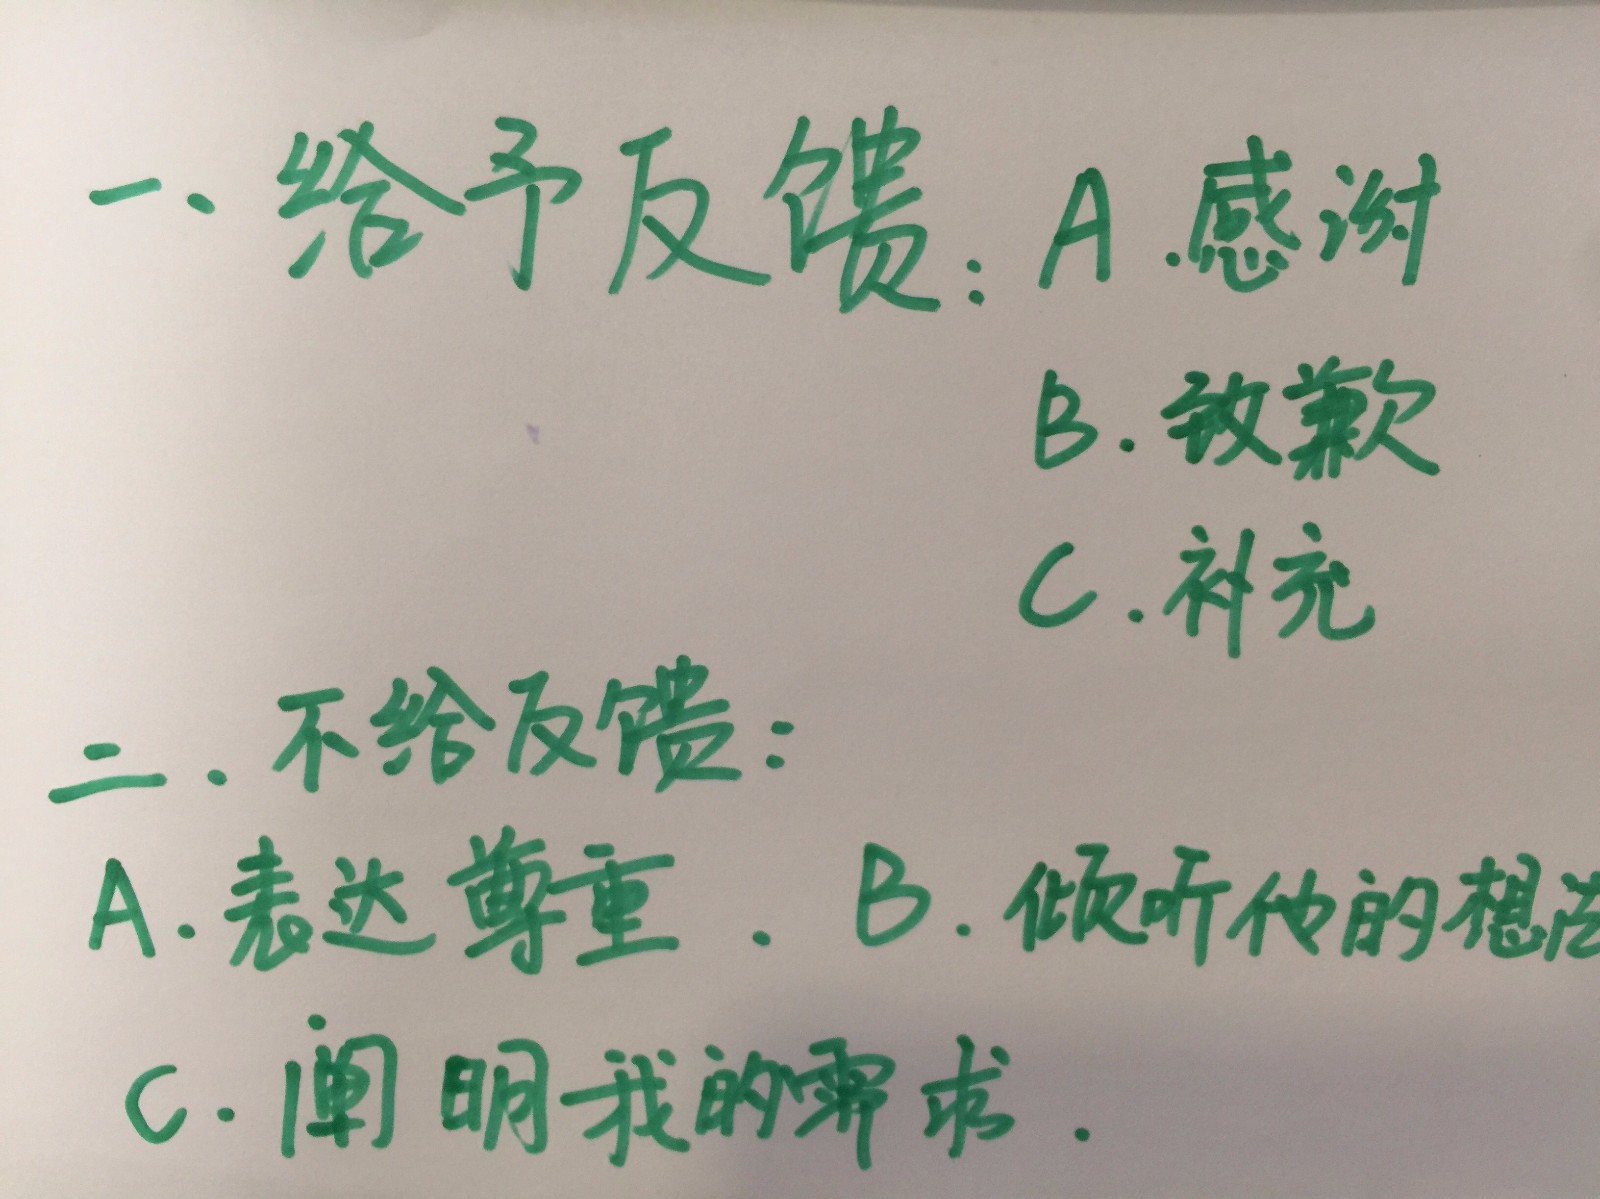 一、给予反馈：A.感谢
B.致歉
C.补充
二.不给反馈：
A.表达尊重. B.倾听他的想法
C.阐明我的需求.